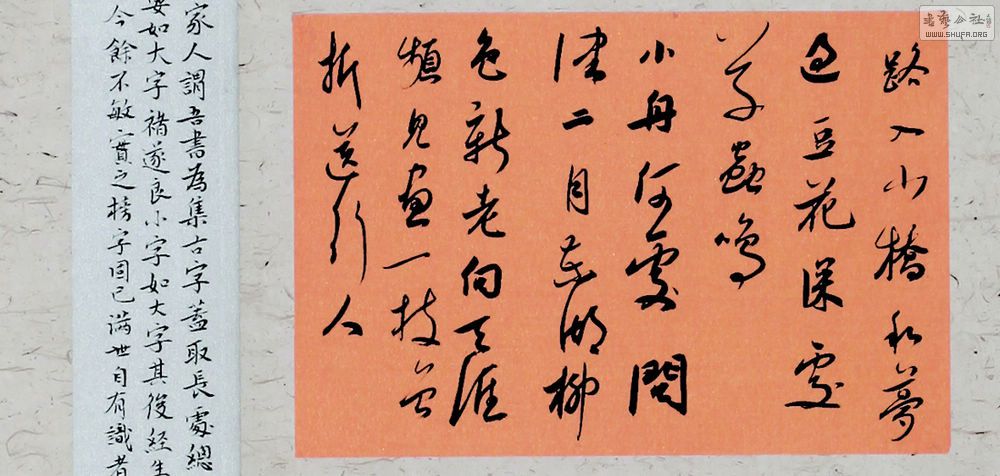 書藝公社
WWW.SHUFA.ORG
路入小橋和夢
過豆花深處
草蟲鳴
小舟何處問
津二月蕪湖柳
色新老向天涯
頻見畫一枝曾
折送行人
家人謂吾書為集古字蓋取長處總
如大字褚遂良小字如大字其後經生
今餘不敏實之榜字固已滿世自有識者